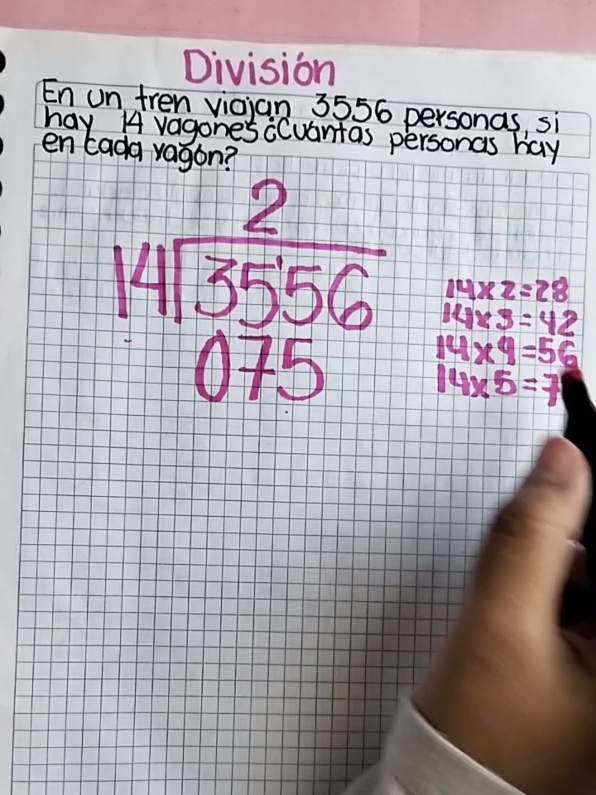 División
En un tren viajan 3556 personas, si
hay 14 vagones ¿Cuántas personas hay
en cada vagón?
2
14 3556
075
14x2=28
14x3=42
14x4=56
14x5=7